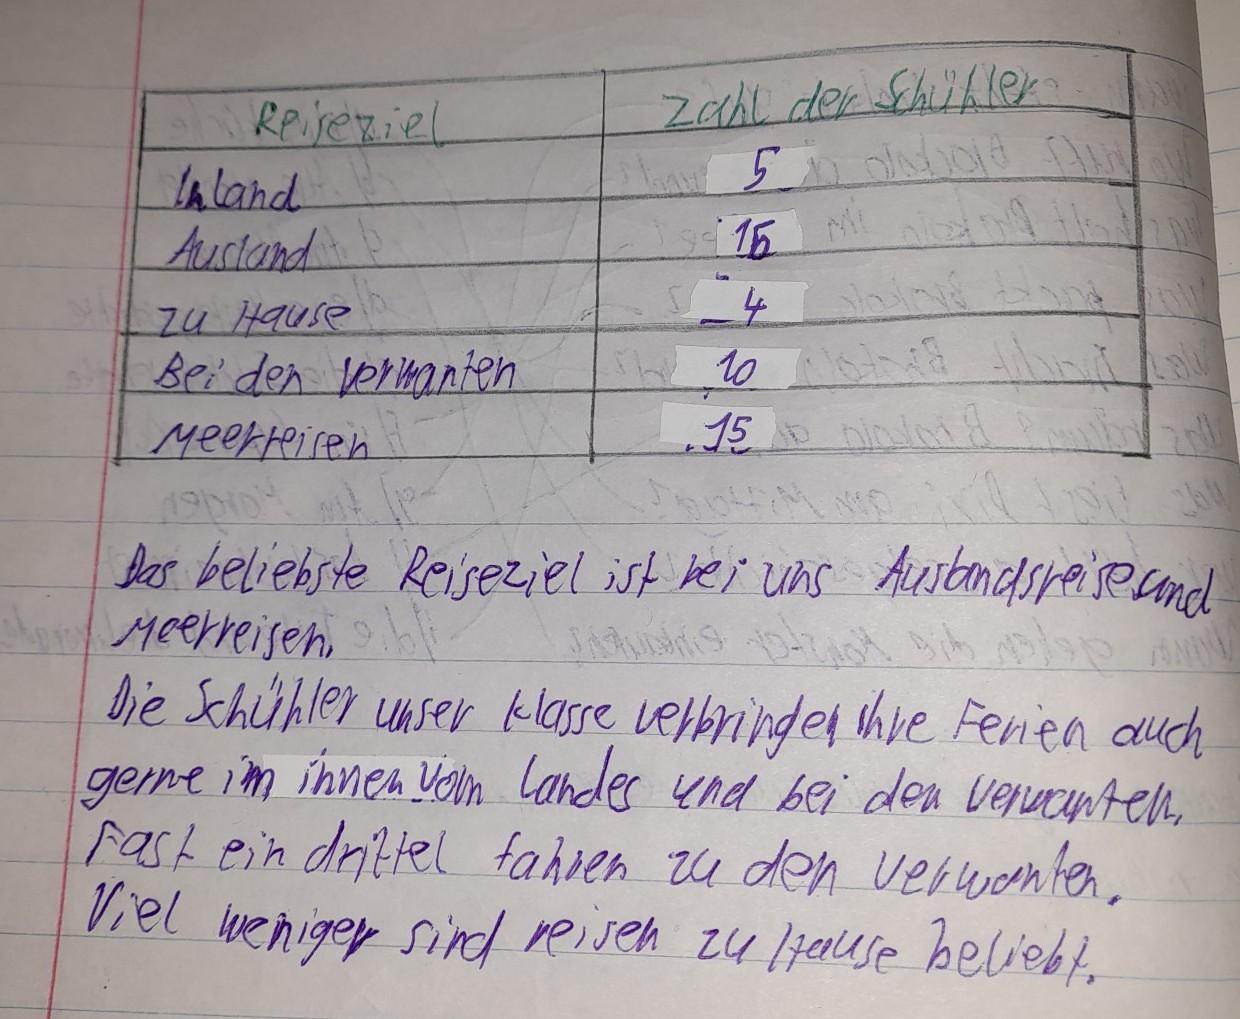 Reiseziel Zahl der Schühler
Inland 5
Ausland 15
zu Hause 4
Bei den verwanten 10
Meerreisen 15
Das beliebste Reiseziel ist bei uns Auslandsreise und
Meerreisen.
Die Schühler unser Klasse verbringen ihre Ferien auch
gerne im innen vom Landes und bei den verwanten.
Fast ein drittel fahren zu den verwanten.
Viel weniger sind reisen zu Hause beliebt.